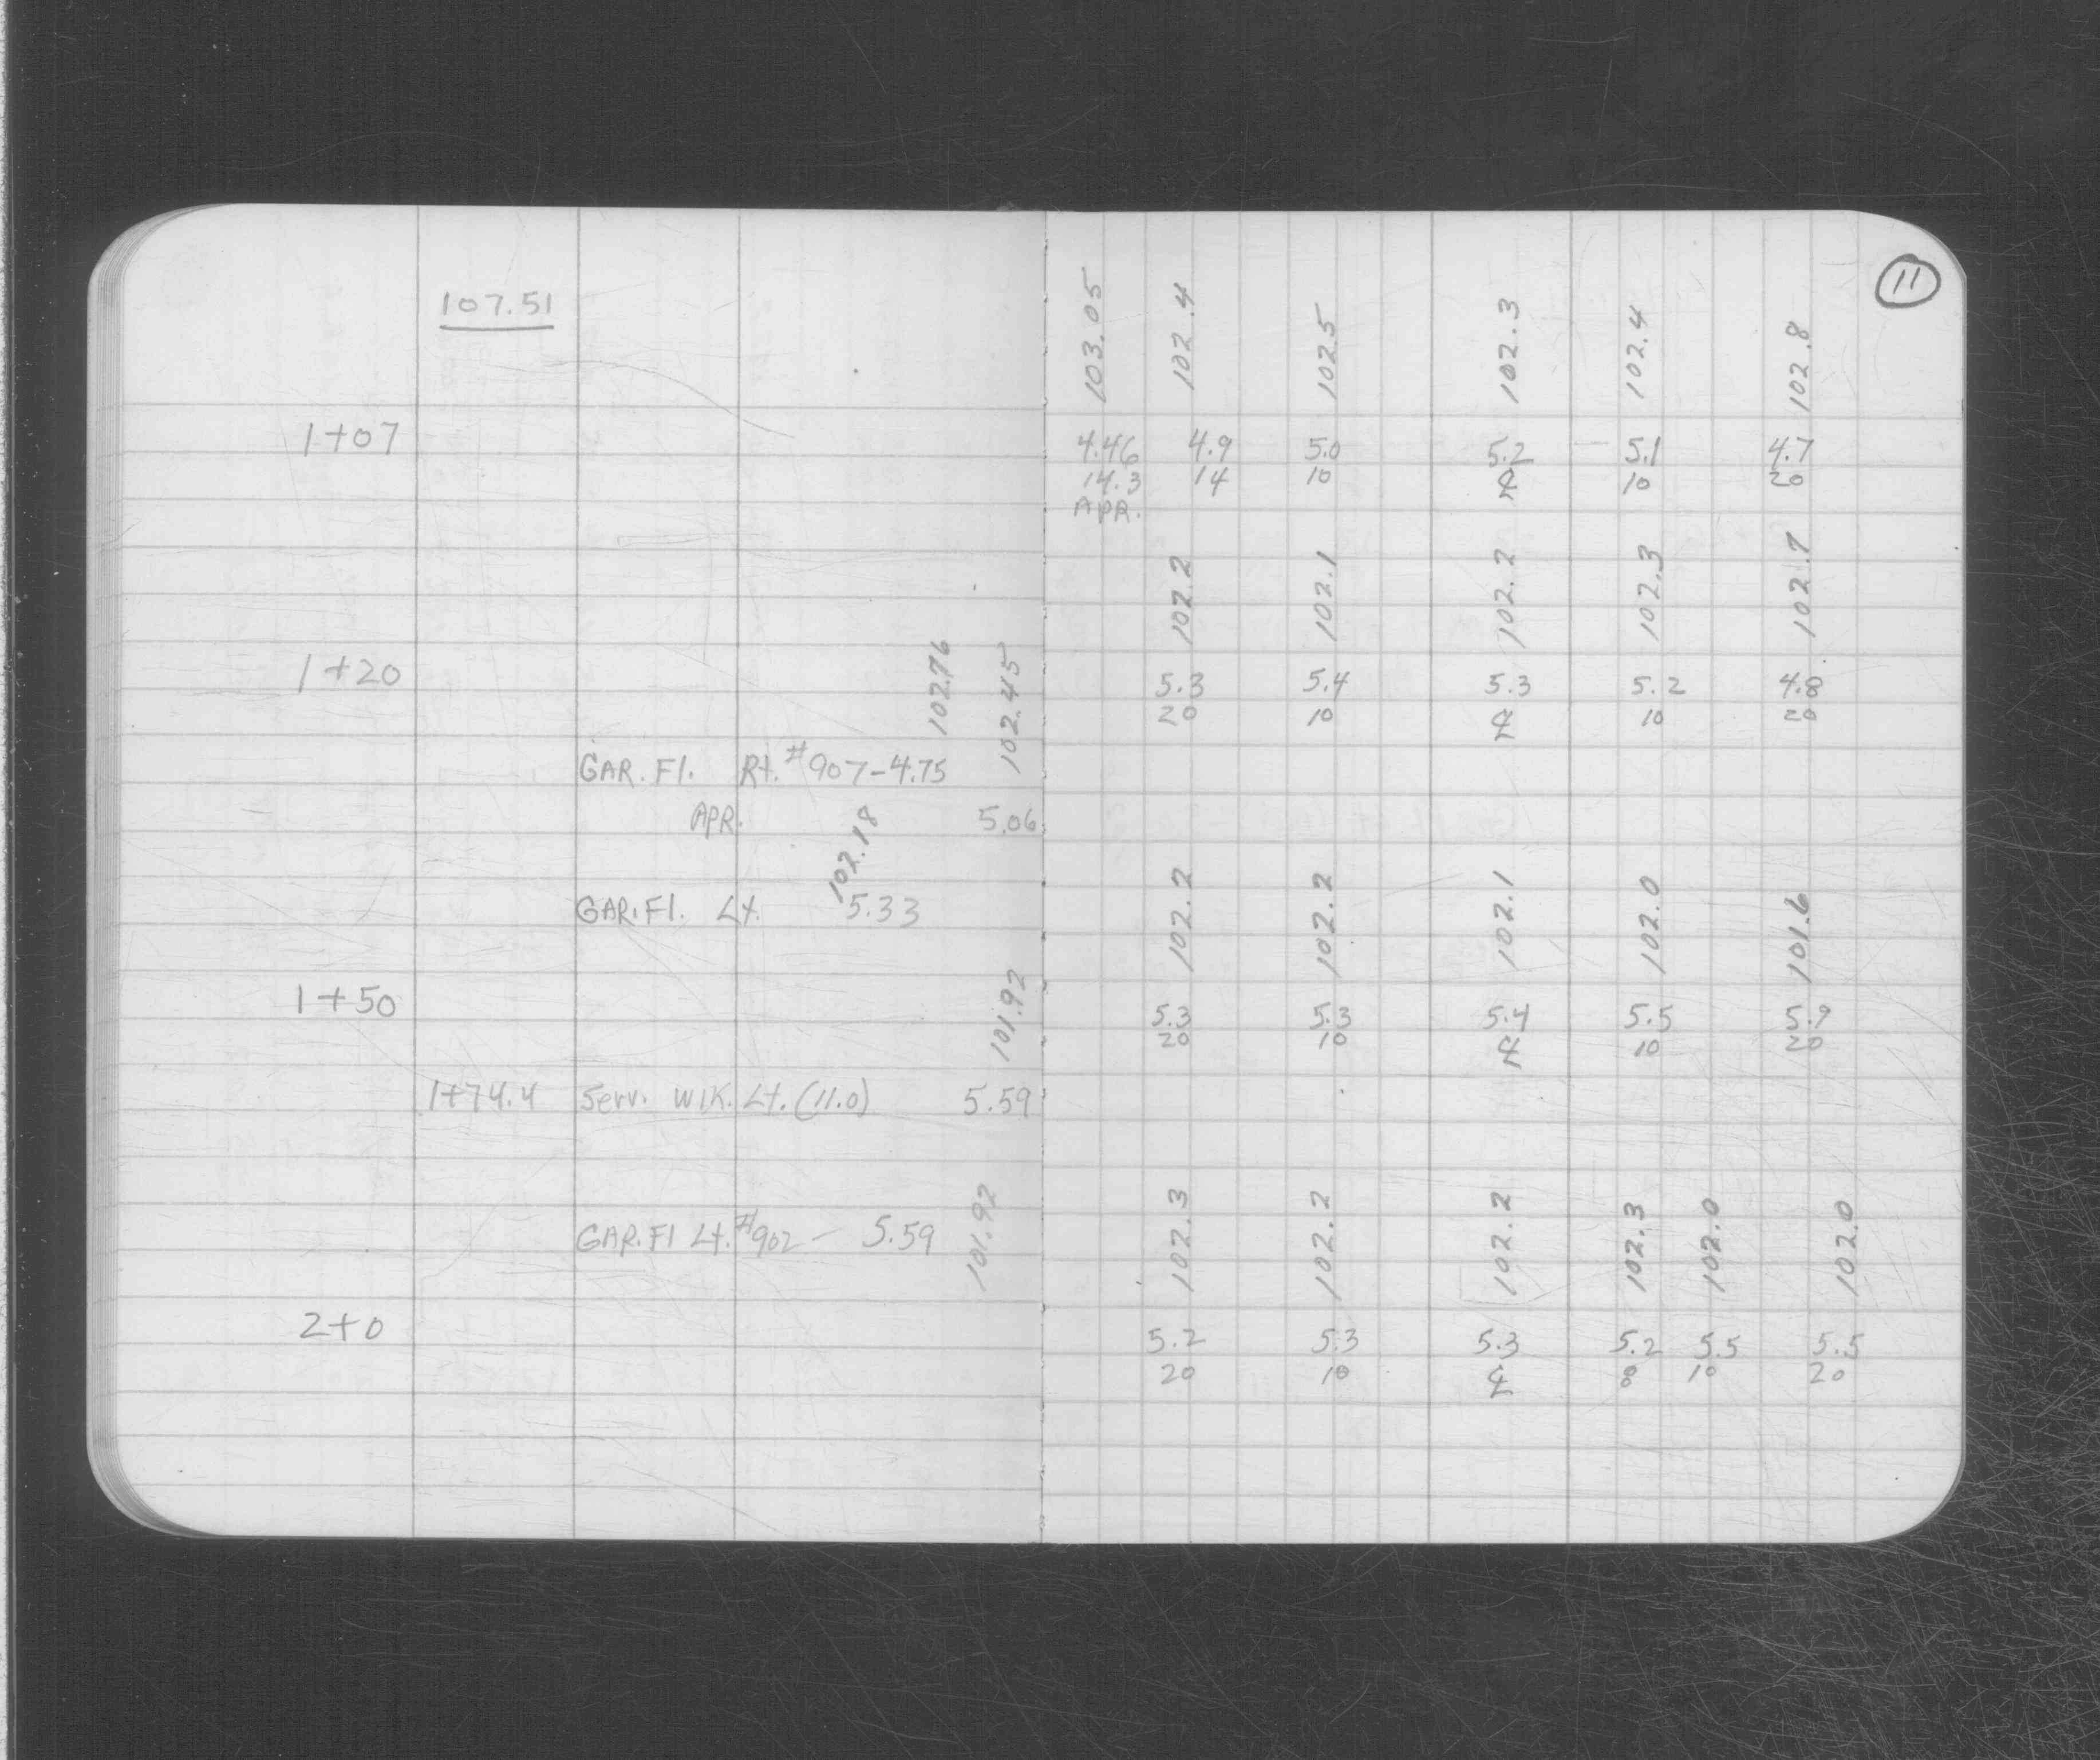 11
107.51
103.05 102.4 102.5 102.3 102.4 102.8
1+07 4.46 4.9 5.0 5.2 5.1 4.7
14.3 14 10 ℄ 10 20
APR.
102.2 102.1 102.2 102.3 102.7
1+20 5.3 5.4 5.3 5.2 4.8
20 10 ℄ 10 20
102.76 102.45
GAR. Fl. Rt. #907-4.75
APR. 5.06
102.18
GAR. Fl. Lt. 5.33
102.2 102.2 102.1 102.0 101.6
1+50 5.3 5.3 5.4 5.5 5.9
20 10 ℄ 10 20
101.92
1+74.4 Serv. WlK. Lt. (11.0) 5.59
101.92
GAR. Fl Lt. #902 - 5.59
102.3 102.2 102.2 102.3 102.0 102.0
2+0 5.2 5.3 5.3 5.2 5.5 5.5
20 10 ℄ 8 10 20